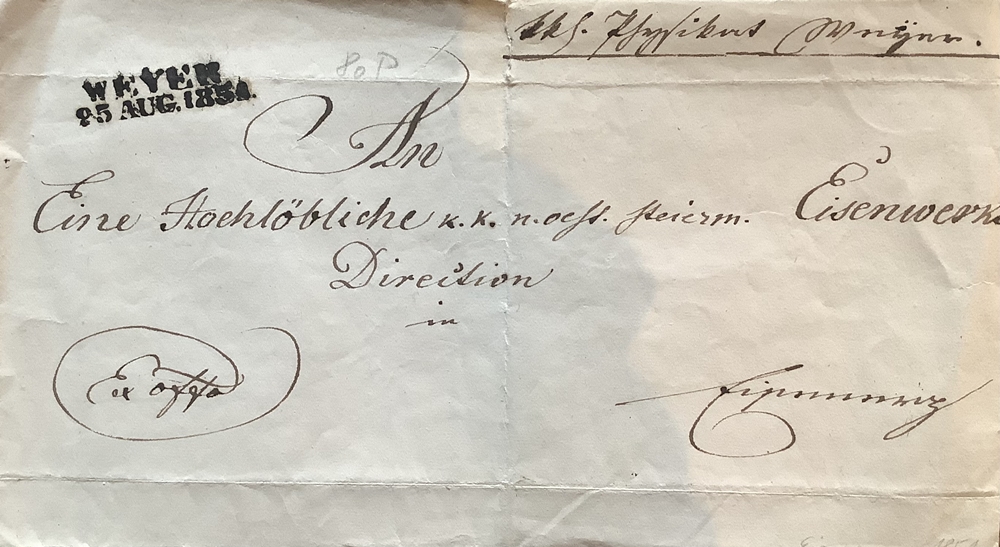 kk. Physikat Weyer.
80 P
WEYER
25 AUG. 1854.
An
Eine Hochlöbliche k. k. n. oest. steierm. Eisenwerks
Direction
in
Ex offo
Eisenerz